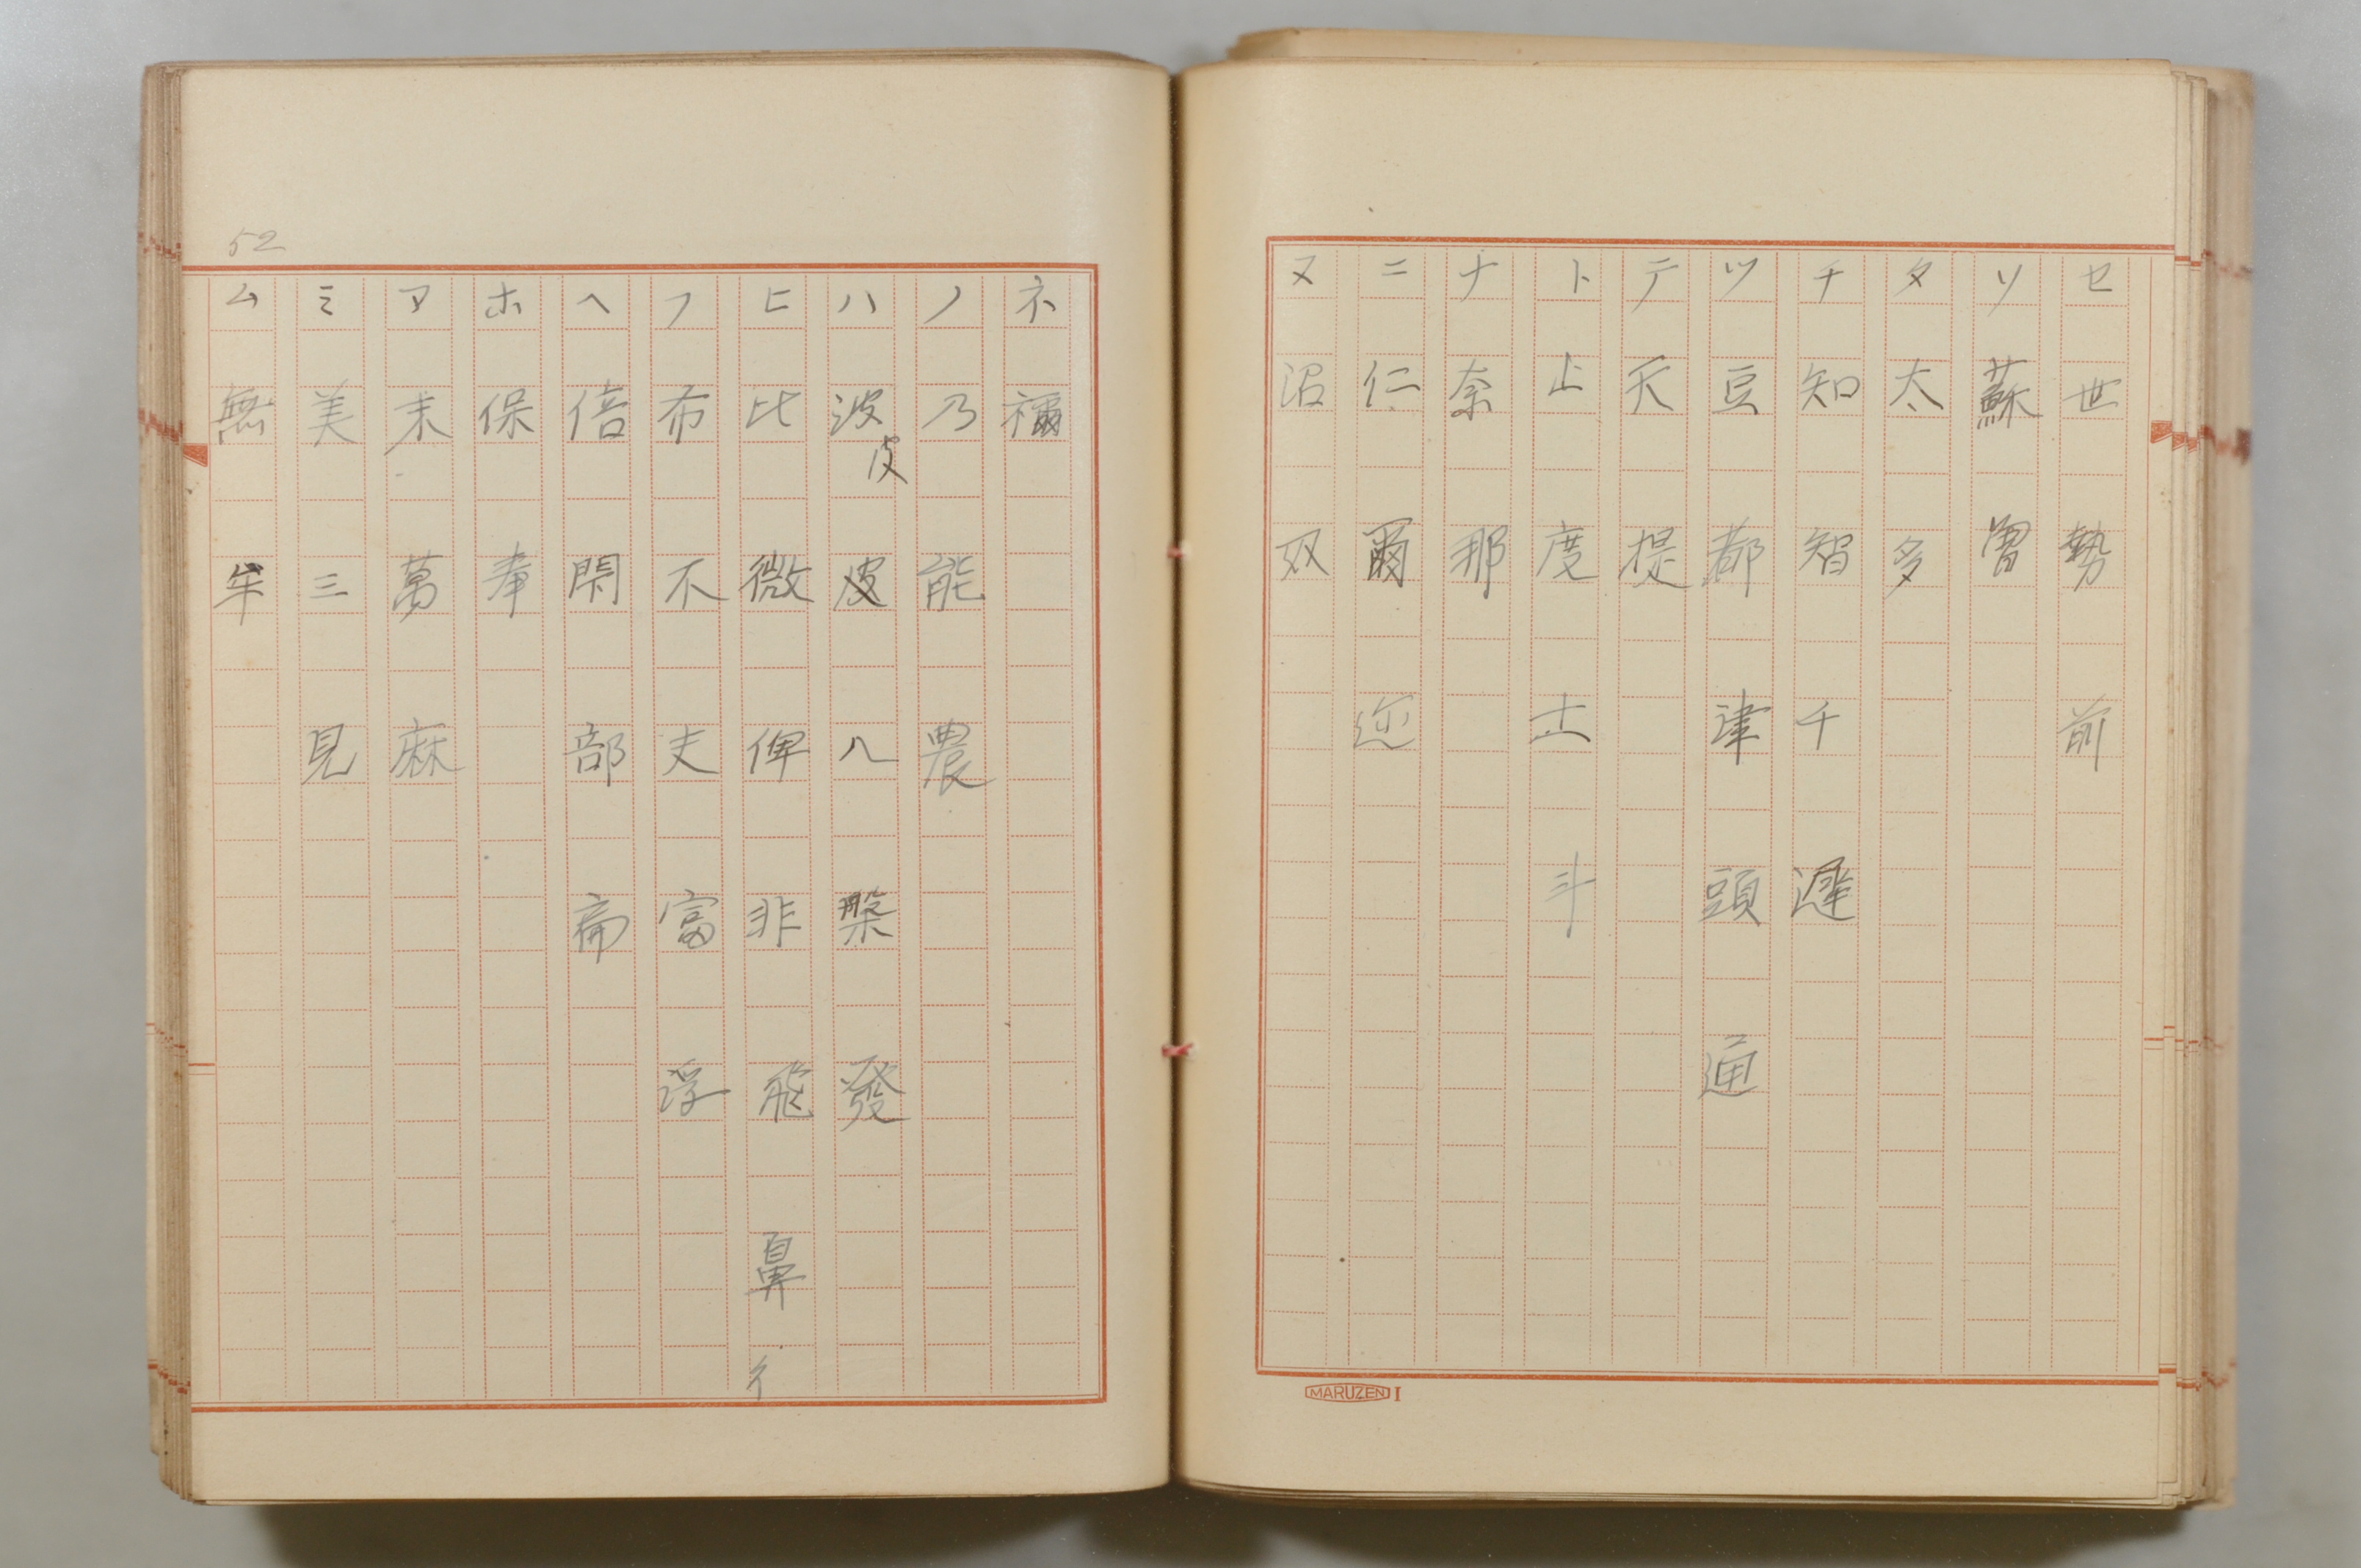 セ 世 勢 前
ソ 蘇 曽
タ 太 多
チ 知 智 千 遅
ツ 豆 都 津 頭 通
テ 天 提
ト 止 度 土 斗
ナ 奈 那
ニ 仁 爾 迩
ヌ 沼 奴
MARUZEN I
52
ネ 禰
ノ 乃 能 農
ハ 波 皮 皮 八 槃 發
ヒ 比 微 俾 非 飛 鼻 彳
フ 布 不 夫 富 浮
ヘ 倍 閇 部 扁
ホ 保 奉
マ 末 萬 麻
ミ 美 三 見
ム 無 牟